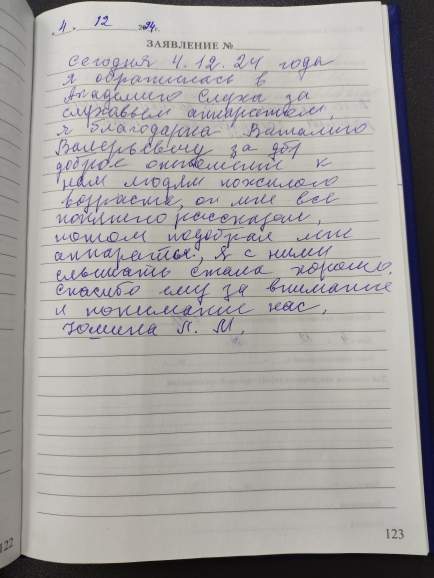 4. 12 2024г.
ЗАЯВЛЕНИЕ №
Сегодня 4.12.24 года
я обратилась в
Академию слуха за
слуховым аппаратом,
я благодарна Виталию
Валерьевичу за
доброе отношение к
нам людям пожилого
возраста, он мне всё
понятно рассказал,
потом подобрал мне
аппараты, я с ними
слышать стала хорошо.
Спасибо ему за внимание
и понимание нас.
Юшина Л. М.
123
122